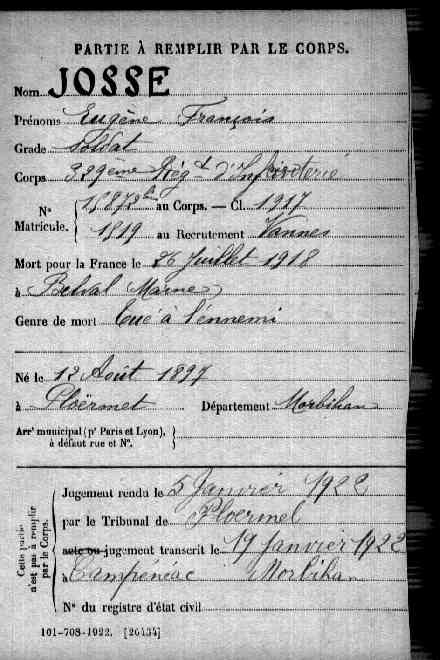 PARTIE À REMPLIR PAR LE CORPS.
Nom JOSSE
Prénoms Eugène François
Grade Soldat
Corps 329ème Régt d'Infanterie
N° 
Matricule.
au Corps. — Cl. 1917
1819 au Recrutement Vannes
Mort pour la France le 26 Juillet 1918
à Belval Marne
Genre de mort tué à l'ennemi
Né le 12 Août 1897
à Ploërmet Département Morbihan
Arrt municipal (pr Paris et Lyon),
à défaut rue et N°.
Cette partie
n'est pas à remplir
par le Corps.
Jugement rendu le 5 Janvier 1922
par le Tribunal de Ploermel
acte ou jugement transcrit le 19 janvier 1922
à Campénéac Morbihan
N° du registre d'état civil
101-708-1922. [26434]